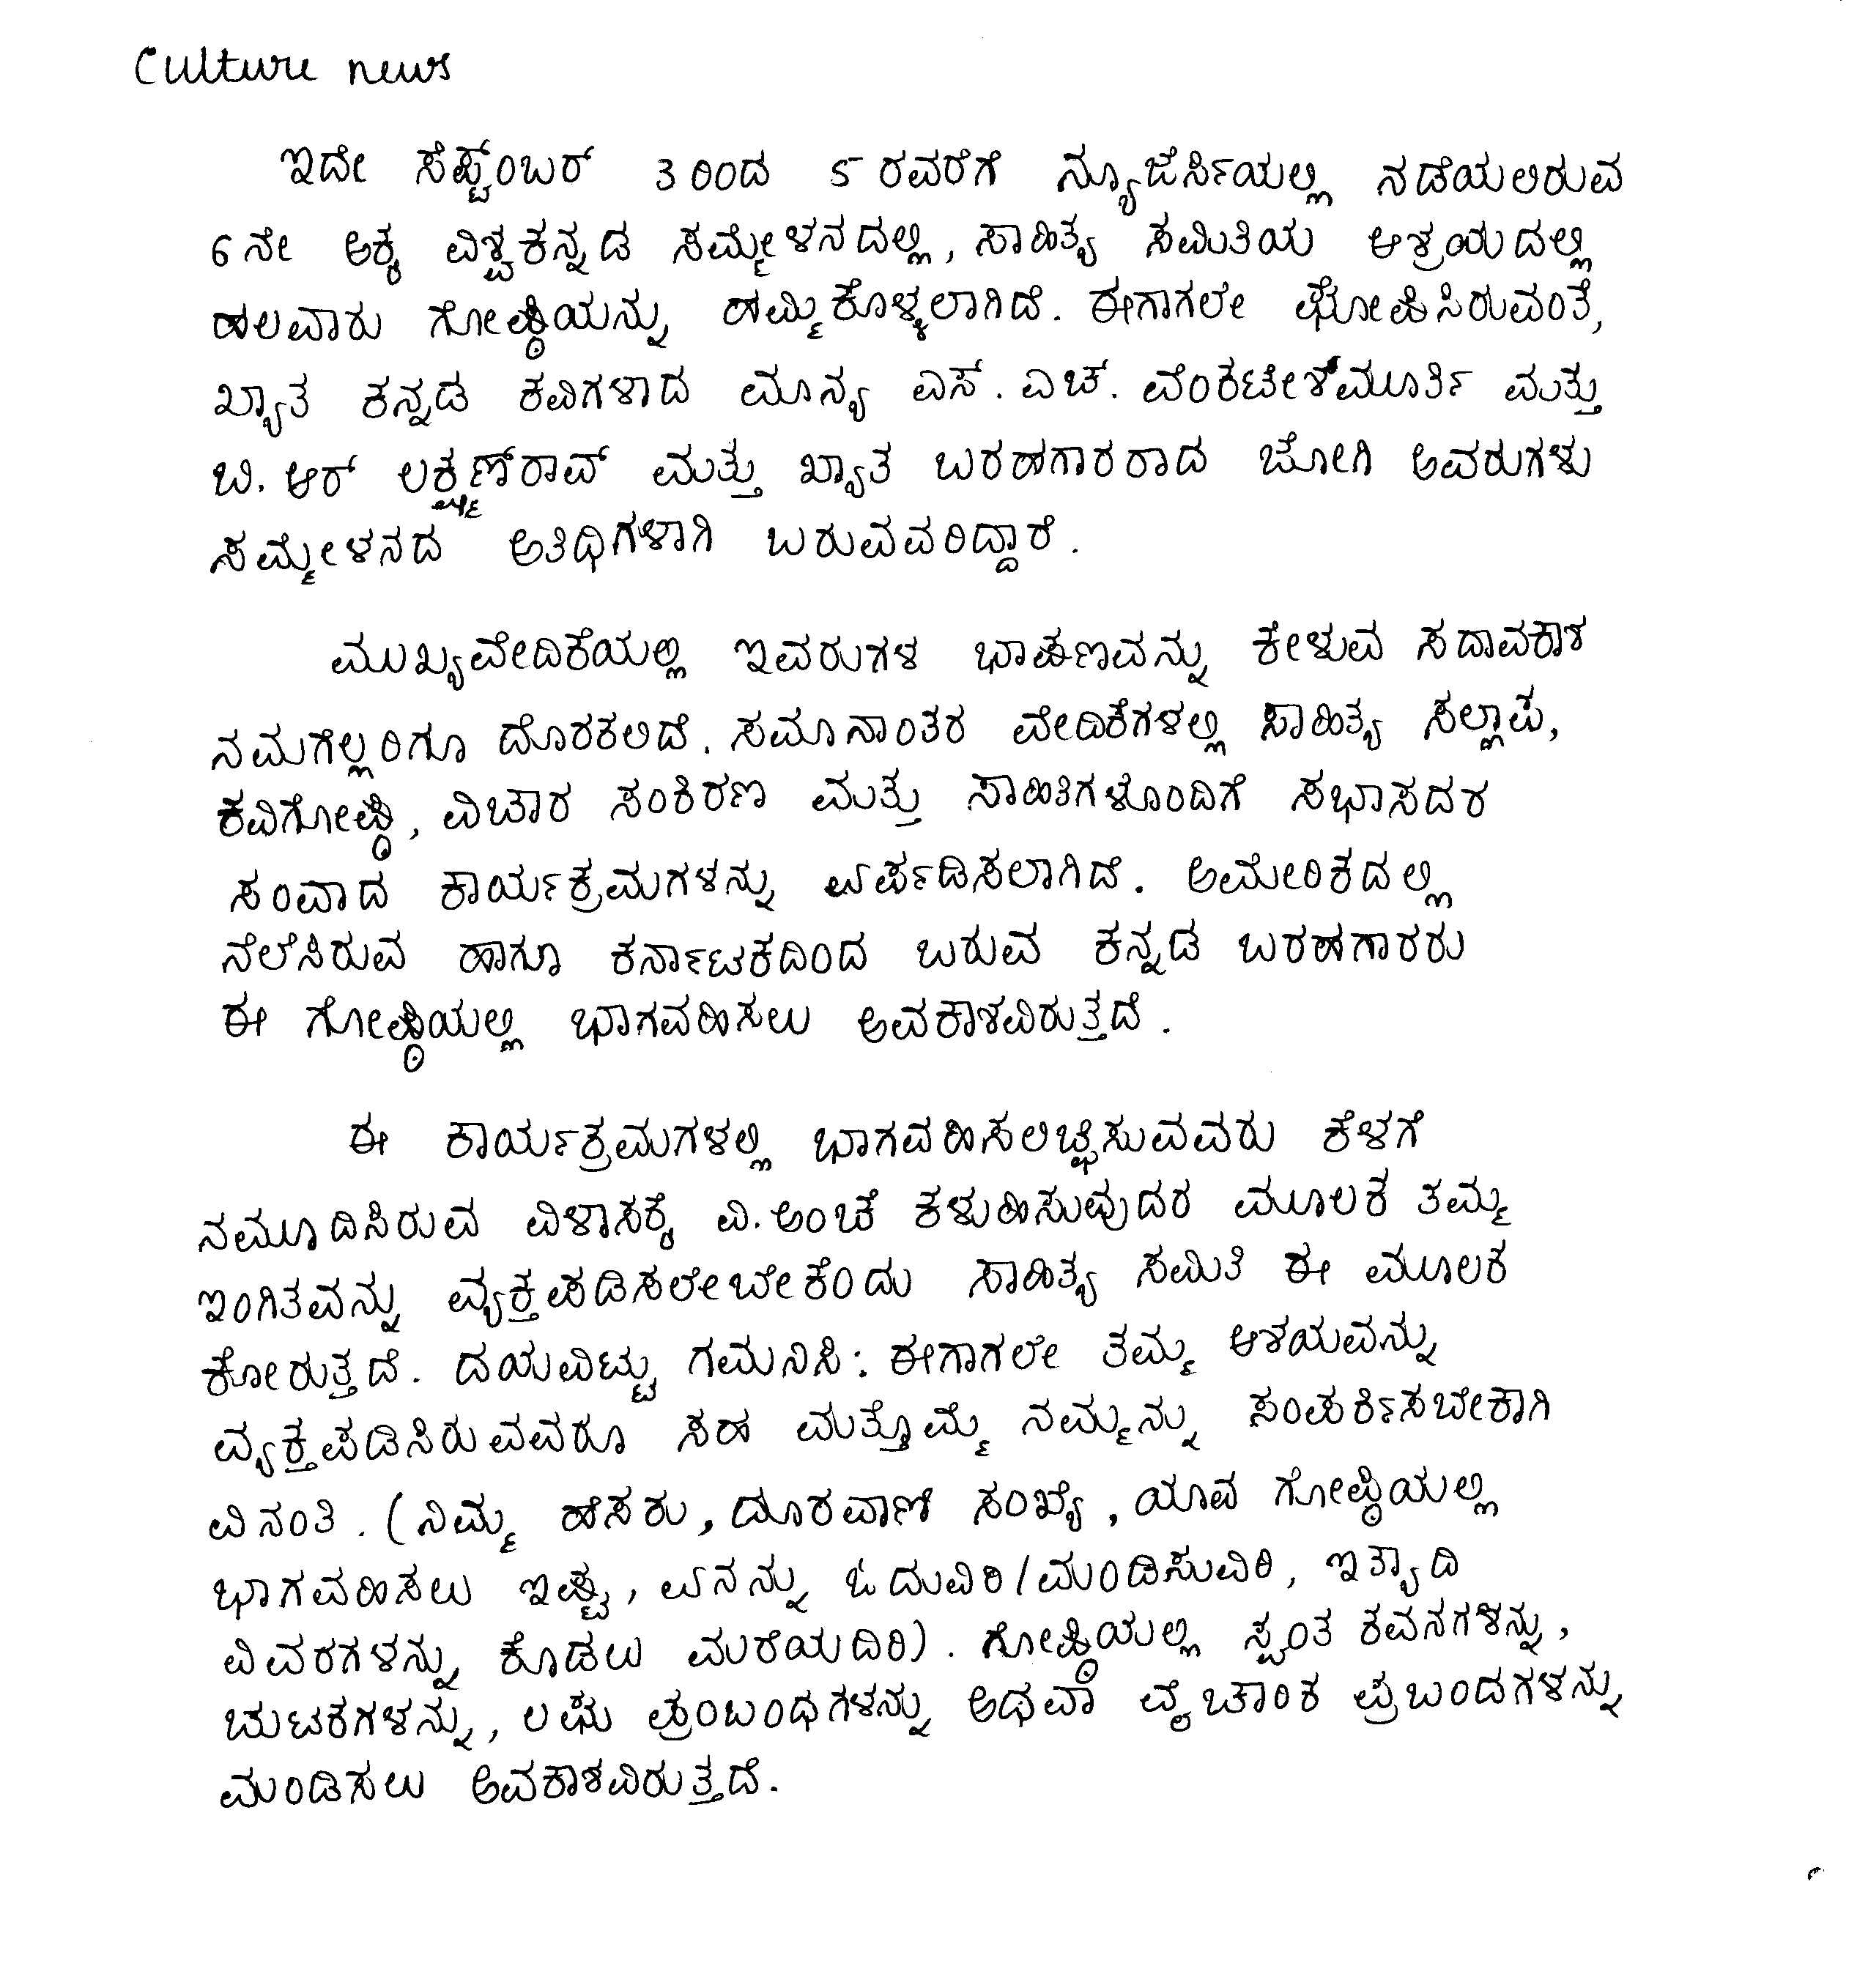 Culture news
ಇದೇ ಸೆಪ್ಟೆಂಬರ್ 3 ರಿಂದ 5 ರವರೆಗೆ ನ್ಯೂಜೆರ್ಸಿಯಲ್ಲಿ ನಡೆಯಲಿರುವ
6 ನೇ ಅಕ್ಕ ವಿಶ್ವಕನ್ನಡ ಸಮ್ಮೇಳನದಲ್ಲಿ, ಸಾಹಿತ್ಯ ಸಮಿತಿಯ ಆಶ್ರಯದಲ್ಲಿ
ಹಲವಾರು ಗೋಷ್ಠಿಯನ್ನು ಹಮ್ಮಿಕೊಳ್ಳಲಾಗಿದೆ. ಈಗಾಗಲೇ ಘೋಷಿಸಿರುವಂತೆ,
ಖ್ಯಾತ ಕನ್ನಡ ಕವಿಗಳಾದ ಮಾನ್ಯ ಎಸ್. ಎಚ್. ವೆಂಕಟೇಶಮೂರ್ತಿ ಮತ್ತು
ಬಿ. ಆರ್ ಲಕ್ಷ್ಮಣ್‌ರಾವ್ ಮತ್ತು ಖ್ಯಾತ ಬರಹಗಾರರಾದ ಜೋಗಿ ಅವರುಗಳು
ಸಮ್ಮೇಳನದ ಅತಿಥಿಗಳಾಗಿ ಬರುವವರಿದ್ದಾರೆ.
ಮುಖ್ಯವೇದಿಕೆಯಲ್ಲಿ ಇವರುಗಳ ಭಾಷಣವನ್ನು ಕೇಳುವ ಸದಾವಕಾಶ
ನಮಗೆಲ್ಲರಿಗೂ ದೊರಕಲಿದೆ. ಸಮಾನಾಂತರ ವೇದಿಕೆಗಳಲ್ಲಿ ಸಾಹಿತ್ಯ ಸಲ್ಲಾಪ,
ಕವಿಗೋಷ್ಠಿ, ವಿಚಾರ ಸಂಕಿರಣ ಮತ್ತು ಸಾಹಿತಿಗಳೊಂದಿಗೆ ಸಭಾಸದರ
ಸಂವಾದ ಕಾರ್ಯಕ್ರಮಗಳನ್ನು ಏರ್ಪಡಿಸಲಾಗಿದೆ. ಅಮೇರಿಕದಲ್ಲಿ
ನೆಲೆಸಿರುವ ಹಾಗೂ ಕರ್ನಾಟಕದಿಂದ ಬರುವ ಕನ್ನಡ ಬರಹಗಾರರು
ಈ ಗೋಷ್ಠಿಯಲ್ಲಿ ಭಾಗವಹಿಸಲು ಅವಕಾಶವಿರುತ್ತದೆ.
ಈ ಕಾರ್ಯಕ್ರಮಗಳಲ್ಲಿ ಭಾಗವಹಿಸಲಿಚ್ಛಿಸುವವರು ಕೆಳಗೆ
ನಮೂದಿಸಿರುವ ವಿಳಾಸಕ್ಕೆ ವಿ. ಅಂಚೆ ಕಳುಹಿಸುವುದರ ಮೂಲಕ ತಮ್ಮ
ಇಂಗಿತವನ್ನು ವ್ಯಕ್ತಪಡಿಸಲೇಬೇಕೆಂದು ಸಾಹಿತ್ಯ ಸಮಿತಿ ಈ ಮೂಲಕ
ಕೋರುತ್ತದೆ. ದಯವಿಟ್ಟು ಗಮನಿಸಿ: ಈಗಾಗಲೇ ತಮ್ಮ ಆಶಯವನ್ನು
ವ್ಯಕ್ತಪಡಿಸಿರುವವರೂ ಸಹ ಮತ್ತೊಮ್ಮೆ ನಮ್ಮನ್ನು ಸಂಪರ್ಕಿಸಬೇಕಾಗಿ
ವಿನಂತಿ. (ನಿಮ್ಮ ಹೆಸರು, ದೂರವಾಣಿ ಸಂಖ್ಯೆ, ಯಾವ ಗೋಷ್ಠಿಯಲ್ಲಿ
ಭಾಗವಹಿಸಲು ಇಷ್ಟ, ಏನನ್ನು ಓದುವಿರಿ/ಮಂಡಿಸುವಿರಿ, ಇತ್ಯಾದಿ
ವಿವರಗಳನ್ನು ಕೊಡಲು ಮರೆಯದಿರಿ). ಗೋಷ್ಠಿಯಲ್ಲಿ ಸ್ವಂತ ಕವನಗಳನ್ನು,
ಚುಟಕಗಳನ್ನು, ಲಘು ಪ್ರಂಬಂಧಗಳನ್ನು ಅಥವಾ ವೈಚಾರಿಕ ಪ್ರಬಂದಗಳನ್ನು
ಮಂಡಿಸಲು ಅವಕಾಶವಿರುತ್ತದೆ.